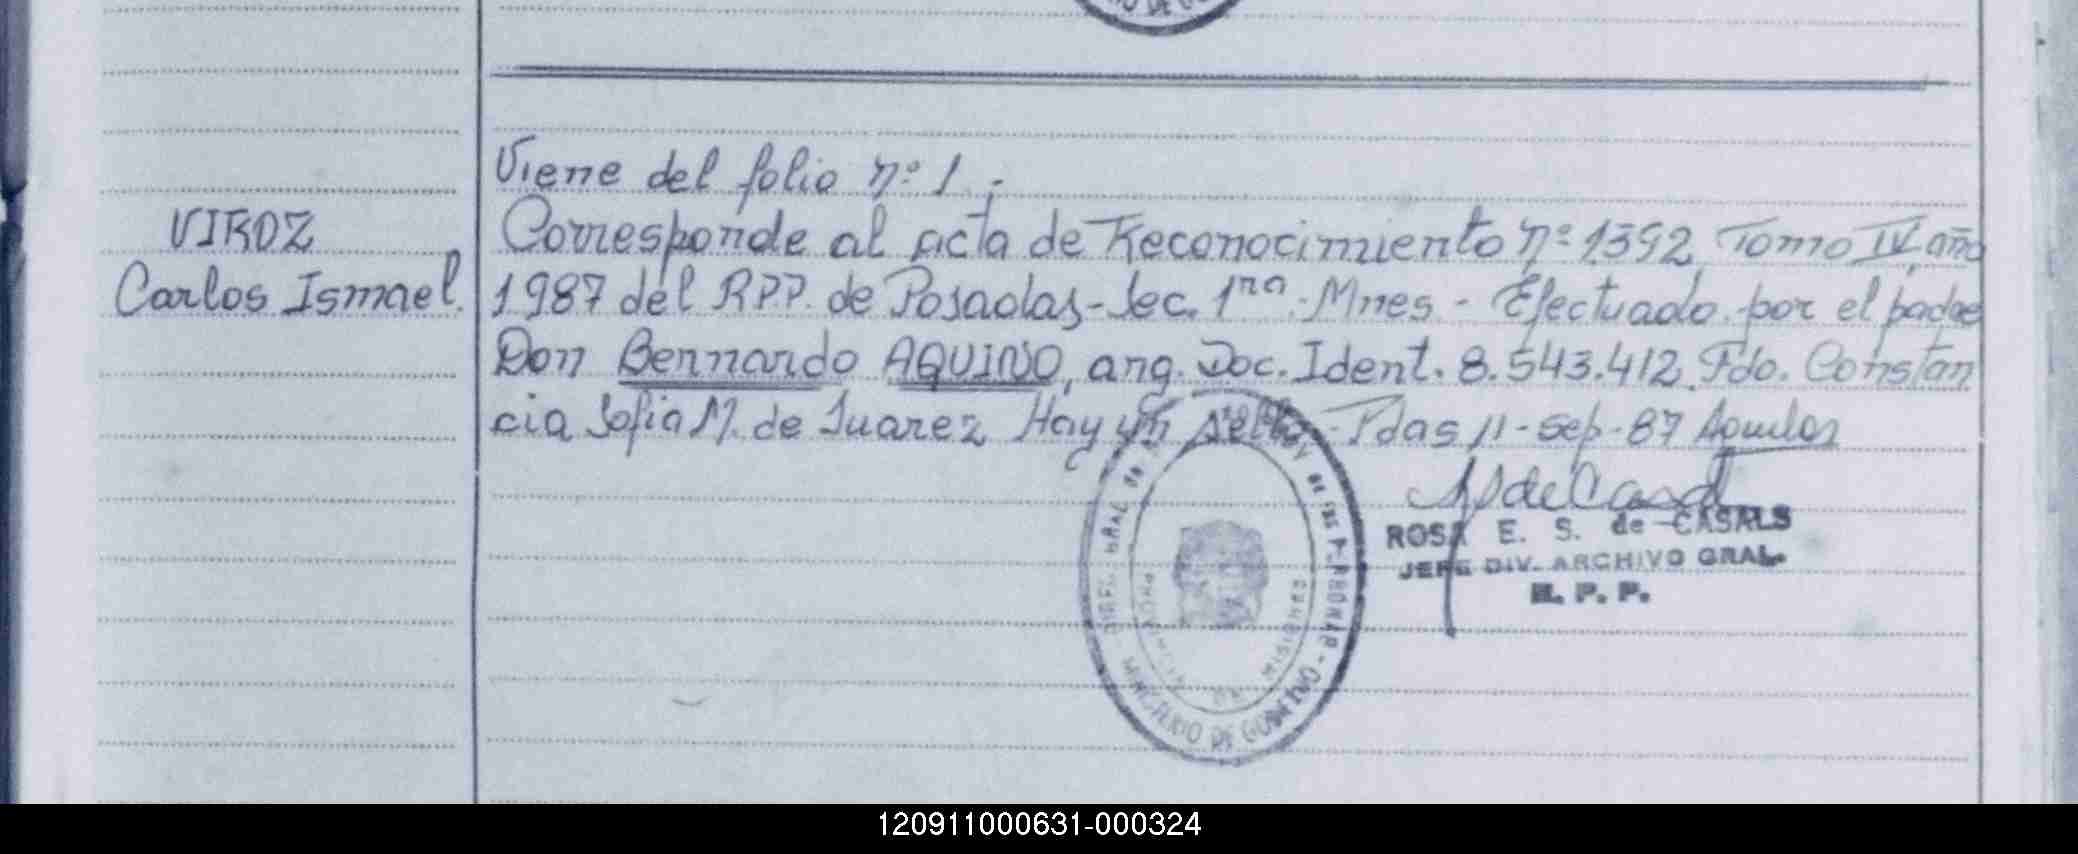 Viene del folio nº 1.-
VIROZ
Carlos Ismael.
Corresponde al acta de Reconocimiento nº 1392, Tomo IV, año
1987 del R.P.P. de Posadas-Sec. 1ra.-Mnes - Efectuado por el padre
Don Bernardo AQUINO, arg. Doc. Ident. 8.543.412. Fdo. Constan
cia Sofia M. de Suarez Hay un sello.- Pdas 11-sep-87
ROSA E. S. de CASALS
JEFE DIV. ARCHIVO GRAL.
R. P. P.
MINISTERIO DE GOBIERNO
PROVINCIA DE MISIONES
120911000631-000324